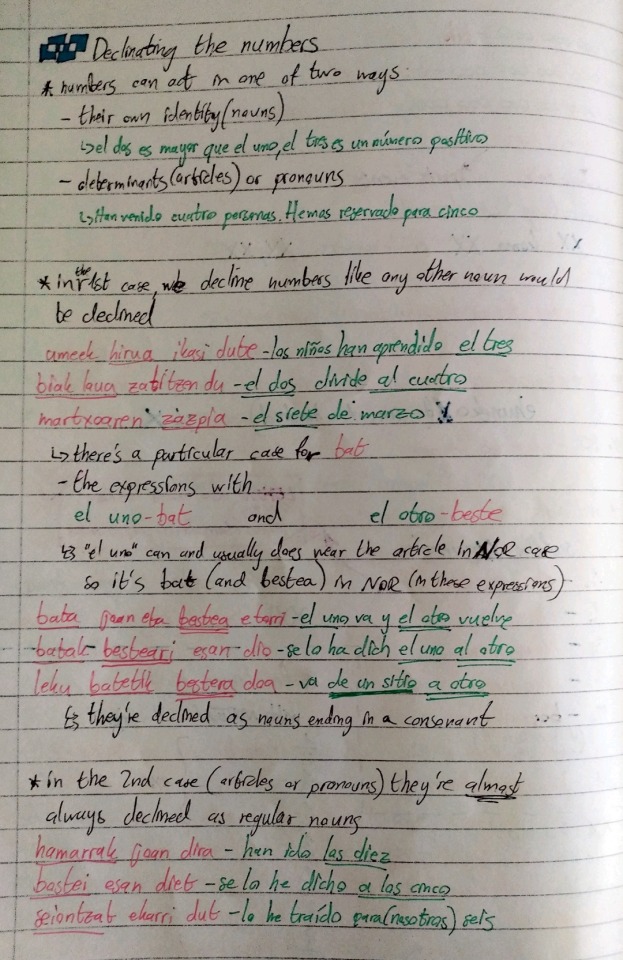 Declinating the numbers
* numbers can act in one of two ways
- their own identity (nouns)
↳ el dos es mayor que el uno, el tres es un número positivo
- determinants (articles) or pronouns
↳ Han venido cuatro personas. Hemos reservado para cinco
* in the 1st case, we decline numbers like any other noun would
be declined
umeek hirua ikasi dute - los niños han aprendido el tres
biak laua zatitzen du - el dos divide al cuatro
martxoaren zazpia - el siete de marzo
↳ there's a particular case for bat
- the expressions with ...
el uno - bat and el otro - beste
↳ "el uno" can and usually does wear the article in NOR case
so it's bat (and bestea) in NOR (in these expressions)
bata joan eta bestea etorri - el uno va y el otro vuelve
batak besteari esan dio - se lo ha dich el uno al otro
leku batetik bestera doa - va de un sitio a otro
↳ they're declined as nouns ending in a consonant
* in the 2nd case (articles or pronouns) they're almost
always declined as regular nouns
hamarrak joan dira - han ido los diez
bostei esan diet - se lo he dicho a los cinco
seiontzat ekarri dut - lo he traído para (nosotros) seis